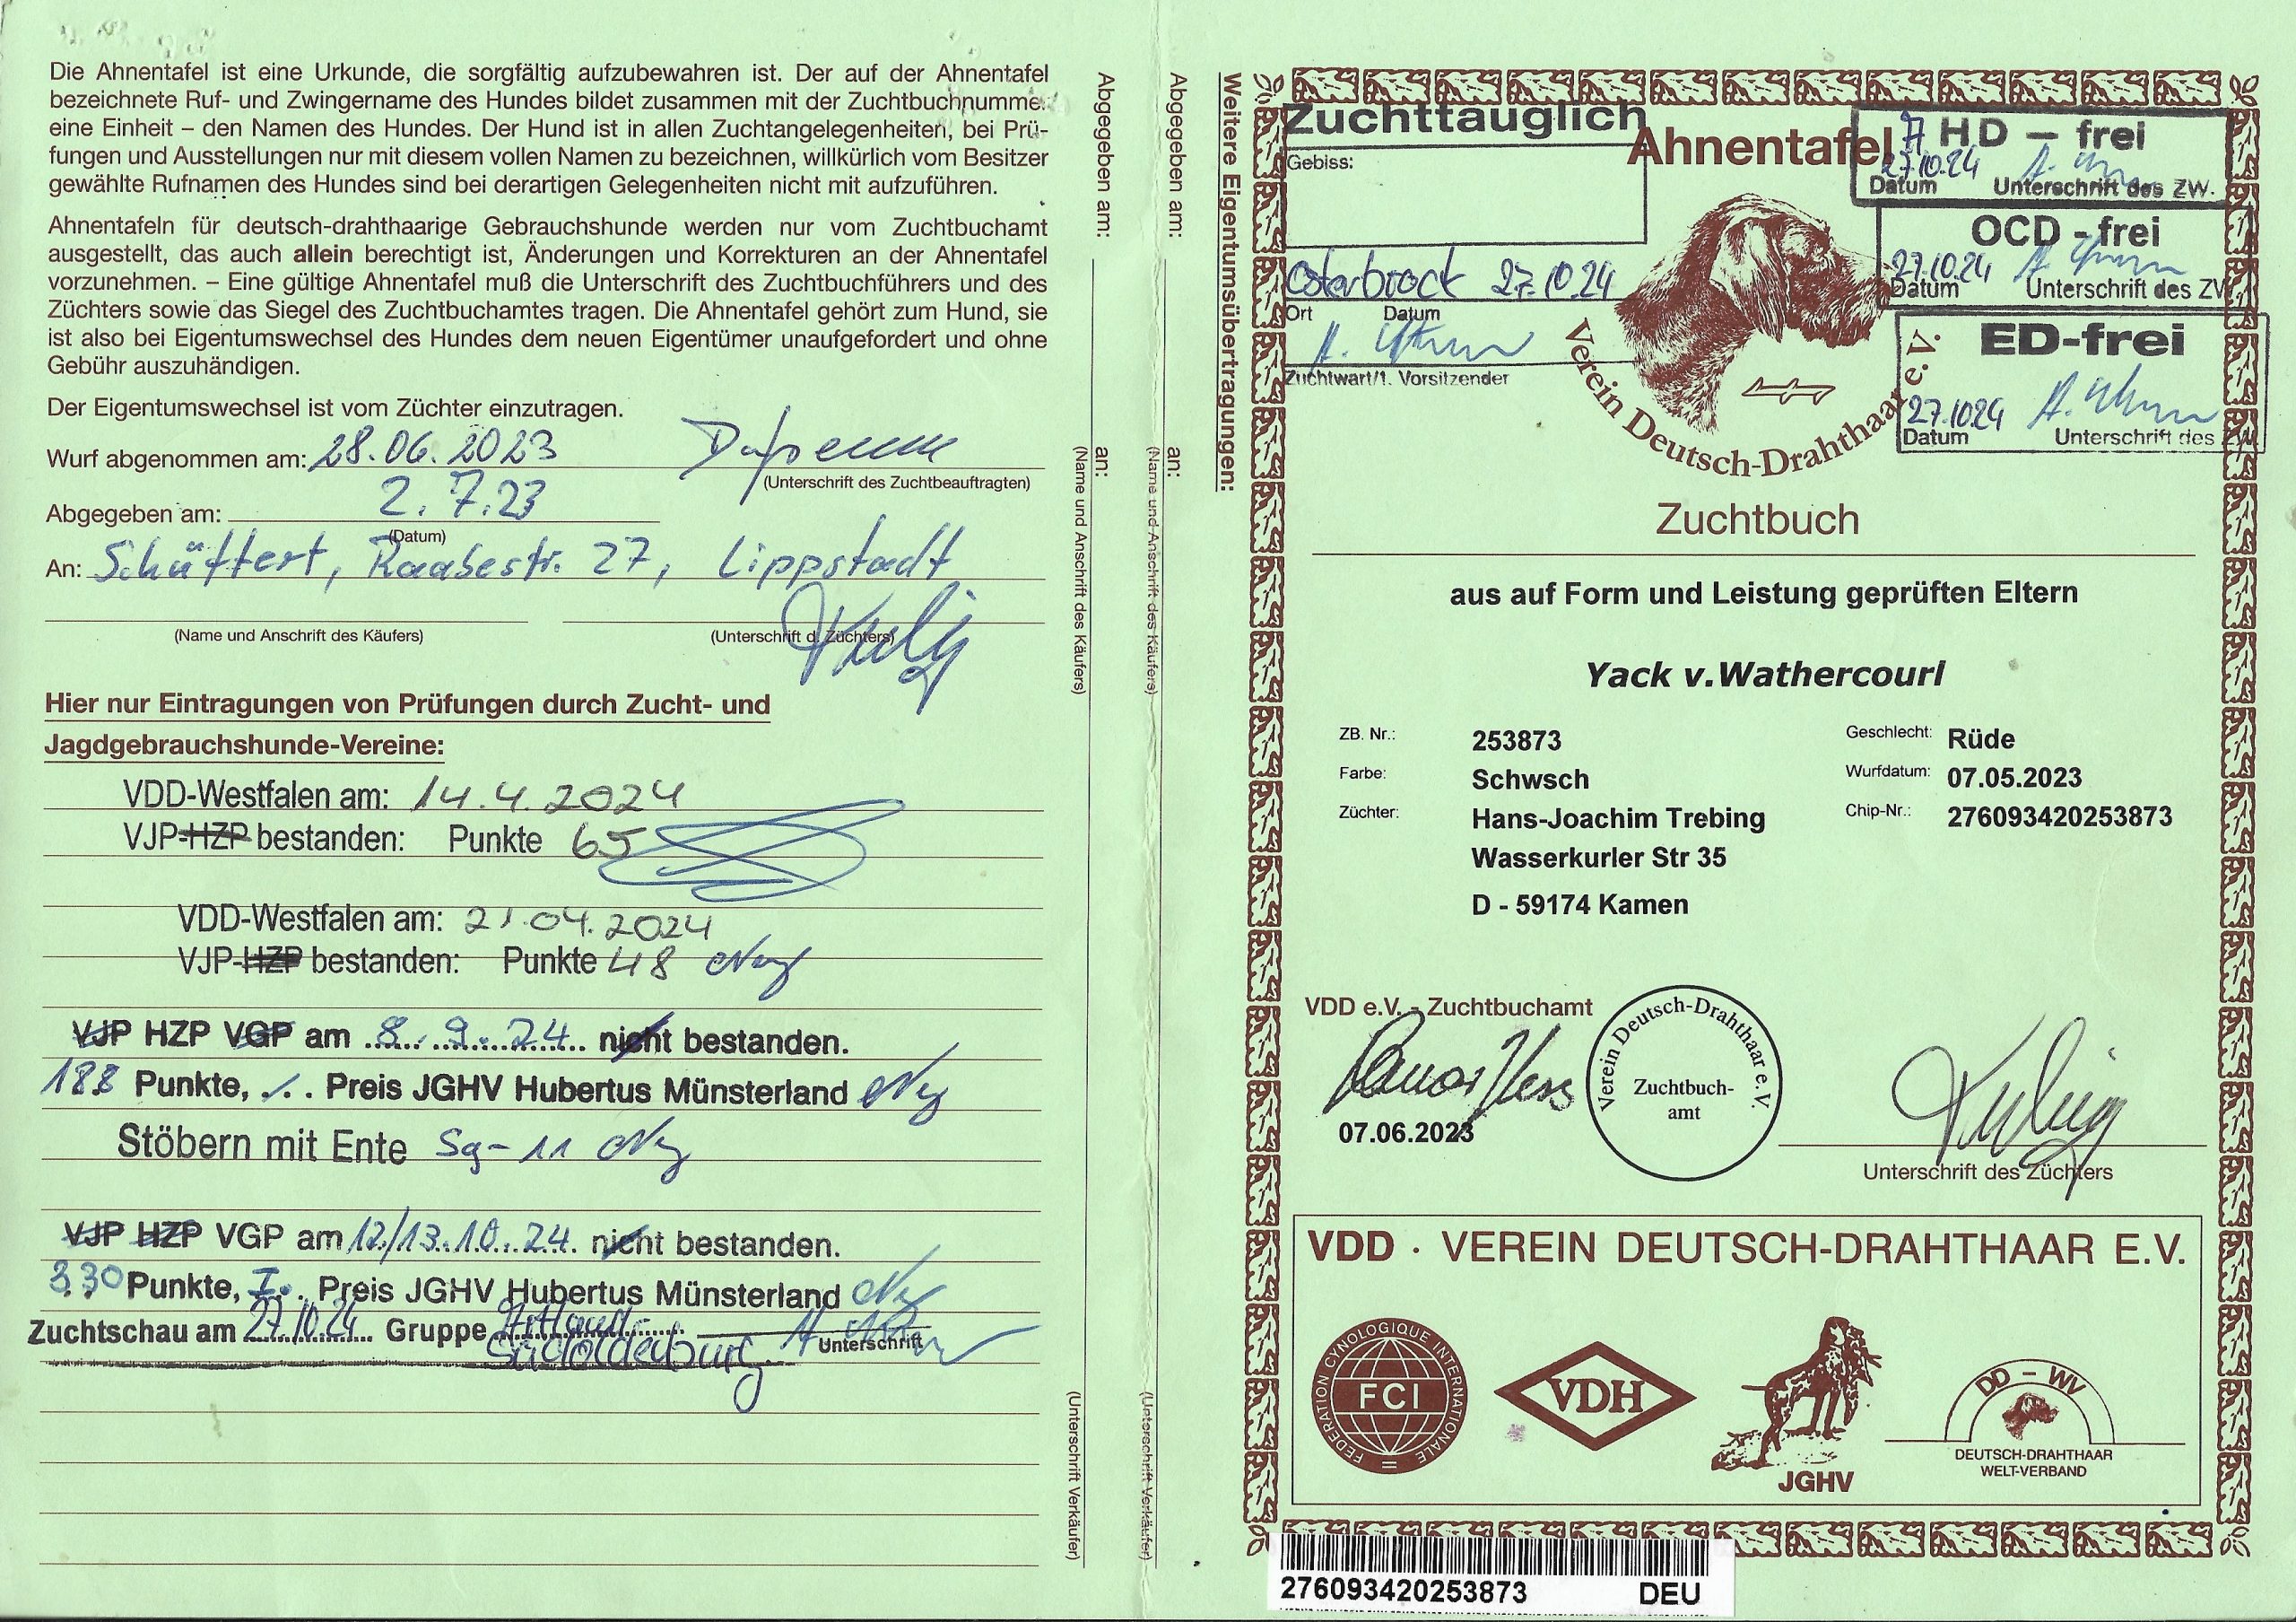 Die Ahnentafel ist eine Urkunde, die sorgfältig aufzubewahren ist. Der auf der Ahnentafel
bezeichnete Ruf- und Zwingername des Hundes bildet zusammen mit der Zuchtbuchnummer
eine Einheit – den Namen des Hundes. Der Hund ist in allen Zuchtangelegenheiten, bei Prü-
fungen und Ausstellungen nur mit diesem vollen Namen zu bezeichnen, willkürlich vom Besitzer
gewählte Rufnamen des Hundes sind bei derartigen Gelegenheiten nicht mit aufzuführen.
Ahnentafeln für deutsch-drahthaarige Gebrauchshunde werden nur vom Zuchtbuchamt
ausgestellt, das auch allein berechtigt ist, Änderungen und Korrekturen an der Ahnentafel
vorzunehmen. – Eine gültige Ahnentafel muß die Unterschrift des Zuchtbuchführers und des
Züchters sowie das Siegel des Zuchtbuchamtes tragen. Die Ahnentafel gehört zum Hund, sie
ist also bei Eigentumswechsel des Hundes dem neuen Eigentümer unaufgefordert und ohne
Gebühr auszuhändigen.
Der Eigentumswechsel ist vom Züchter einzutragen.
Wurf abgenommen am: 28.06.2023
(Unterschrift des Zuchtbeauftragten)
Abgegeben am: 2.7.23
(Datum)
An: Schüttert, Raabestr. 27, Lippstadt
(Name und Anschrift des Käufers) (Unterschrift d. Züchters)
Hier nur Eintragungen von Prüfungen durch Zucht- und
Jagdgebrauchshunde-Vereine:
VDD-Westfalen am: 14.4.2024
VJP-HZP bestanden: Punkte 65
VDD-Westfalen am: 21.04.2024
VJP-HZP bestanden: Punkte 48
VJP HZP VGP am 8. 9. 24. nicht bestanden.
188 Punkte, ./. Preis JGHV Hubertus Münsterland
Stöbern mit Ente Sg-11
VJP HZP VGP am 12./13.10.24. nicht bestanden.
330 Punkte, I. Preis JGHV Hubertus Münsterland
Zuchtschau am 27.10.24 Gruppe Artland-
Südoldenburg Unterschrift
Abgegeben am: an:
(Name und Anschrift des Käufers)
(Unterschrift Verkäufer)
Abgegeben am: an:
(Name und Anschrift des Käufers)
(Unterschrift Verkäufer)
Weitere Eigentumsübertragungen:
Zuchttauglich
Gebiss:
Osterbrock 27.10.24
Ort Datum
Zuchtwart/1. Vorsitzender
Ahnentafel
HD – frei
27.10.24
Datum Unterschrift des ZW.
OCD - frei
27.10.24
Datum Unterschrift des ZW
ED-frei
27.10.24
Datum Unterschrift des ZW
Verein Deutsch-Drahthaar e.V.
Zuchtbuch
aus auf Form und Leistung geprüften Eltern
Yack v.Wathercourl
ZB. Nr.: 253873 Geschlecht: Rüde
Farbe: Schwsch Wurfdatum: 07.05.2023
Züchter: Hans-Joachim Trebing Chip-Nr.: 276093420253873
Wasserkurler Str 35
D - 59174 Kamen
VDD e.V. - Zuchtbuchamt
07.06.2023
Verein Deutsch-Drahthaar e.V.
Zuchtbuch-
amt
Unterschrift des Züchters
VDD · VEREIN DEUTSCH-DRAHTHAAR E.V.
FEDERATION CYNOLOGIQUE INTERNATIONALE
FCI
VDH
JGHV
DD – WV
DEUTSCH-DRAHTHAAR
WELT-VERBAND
276093420253873 DEU